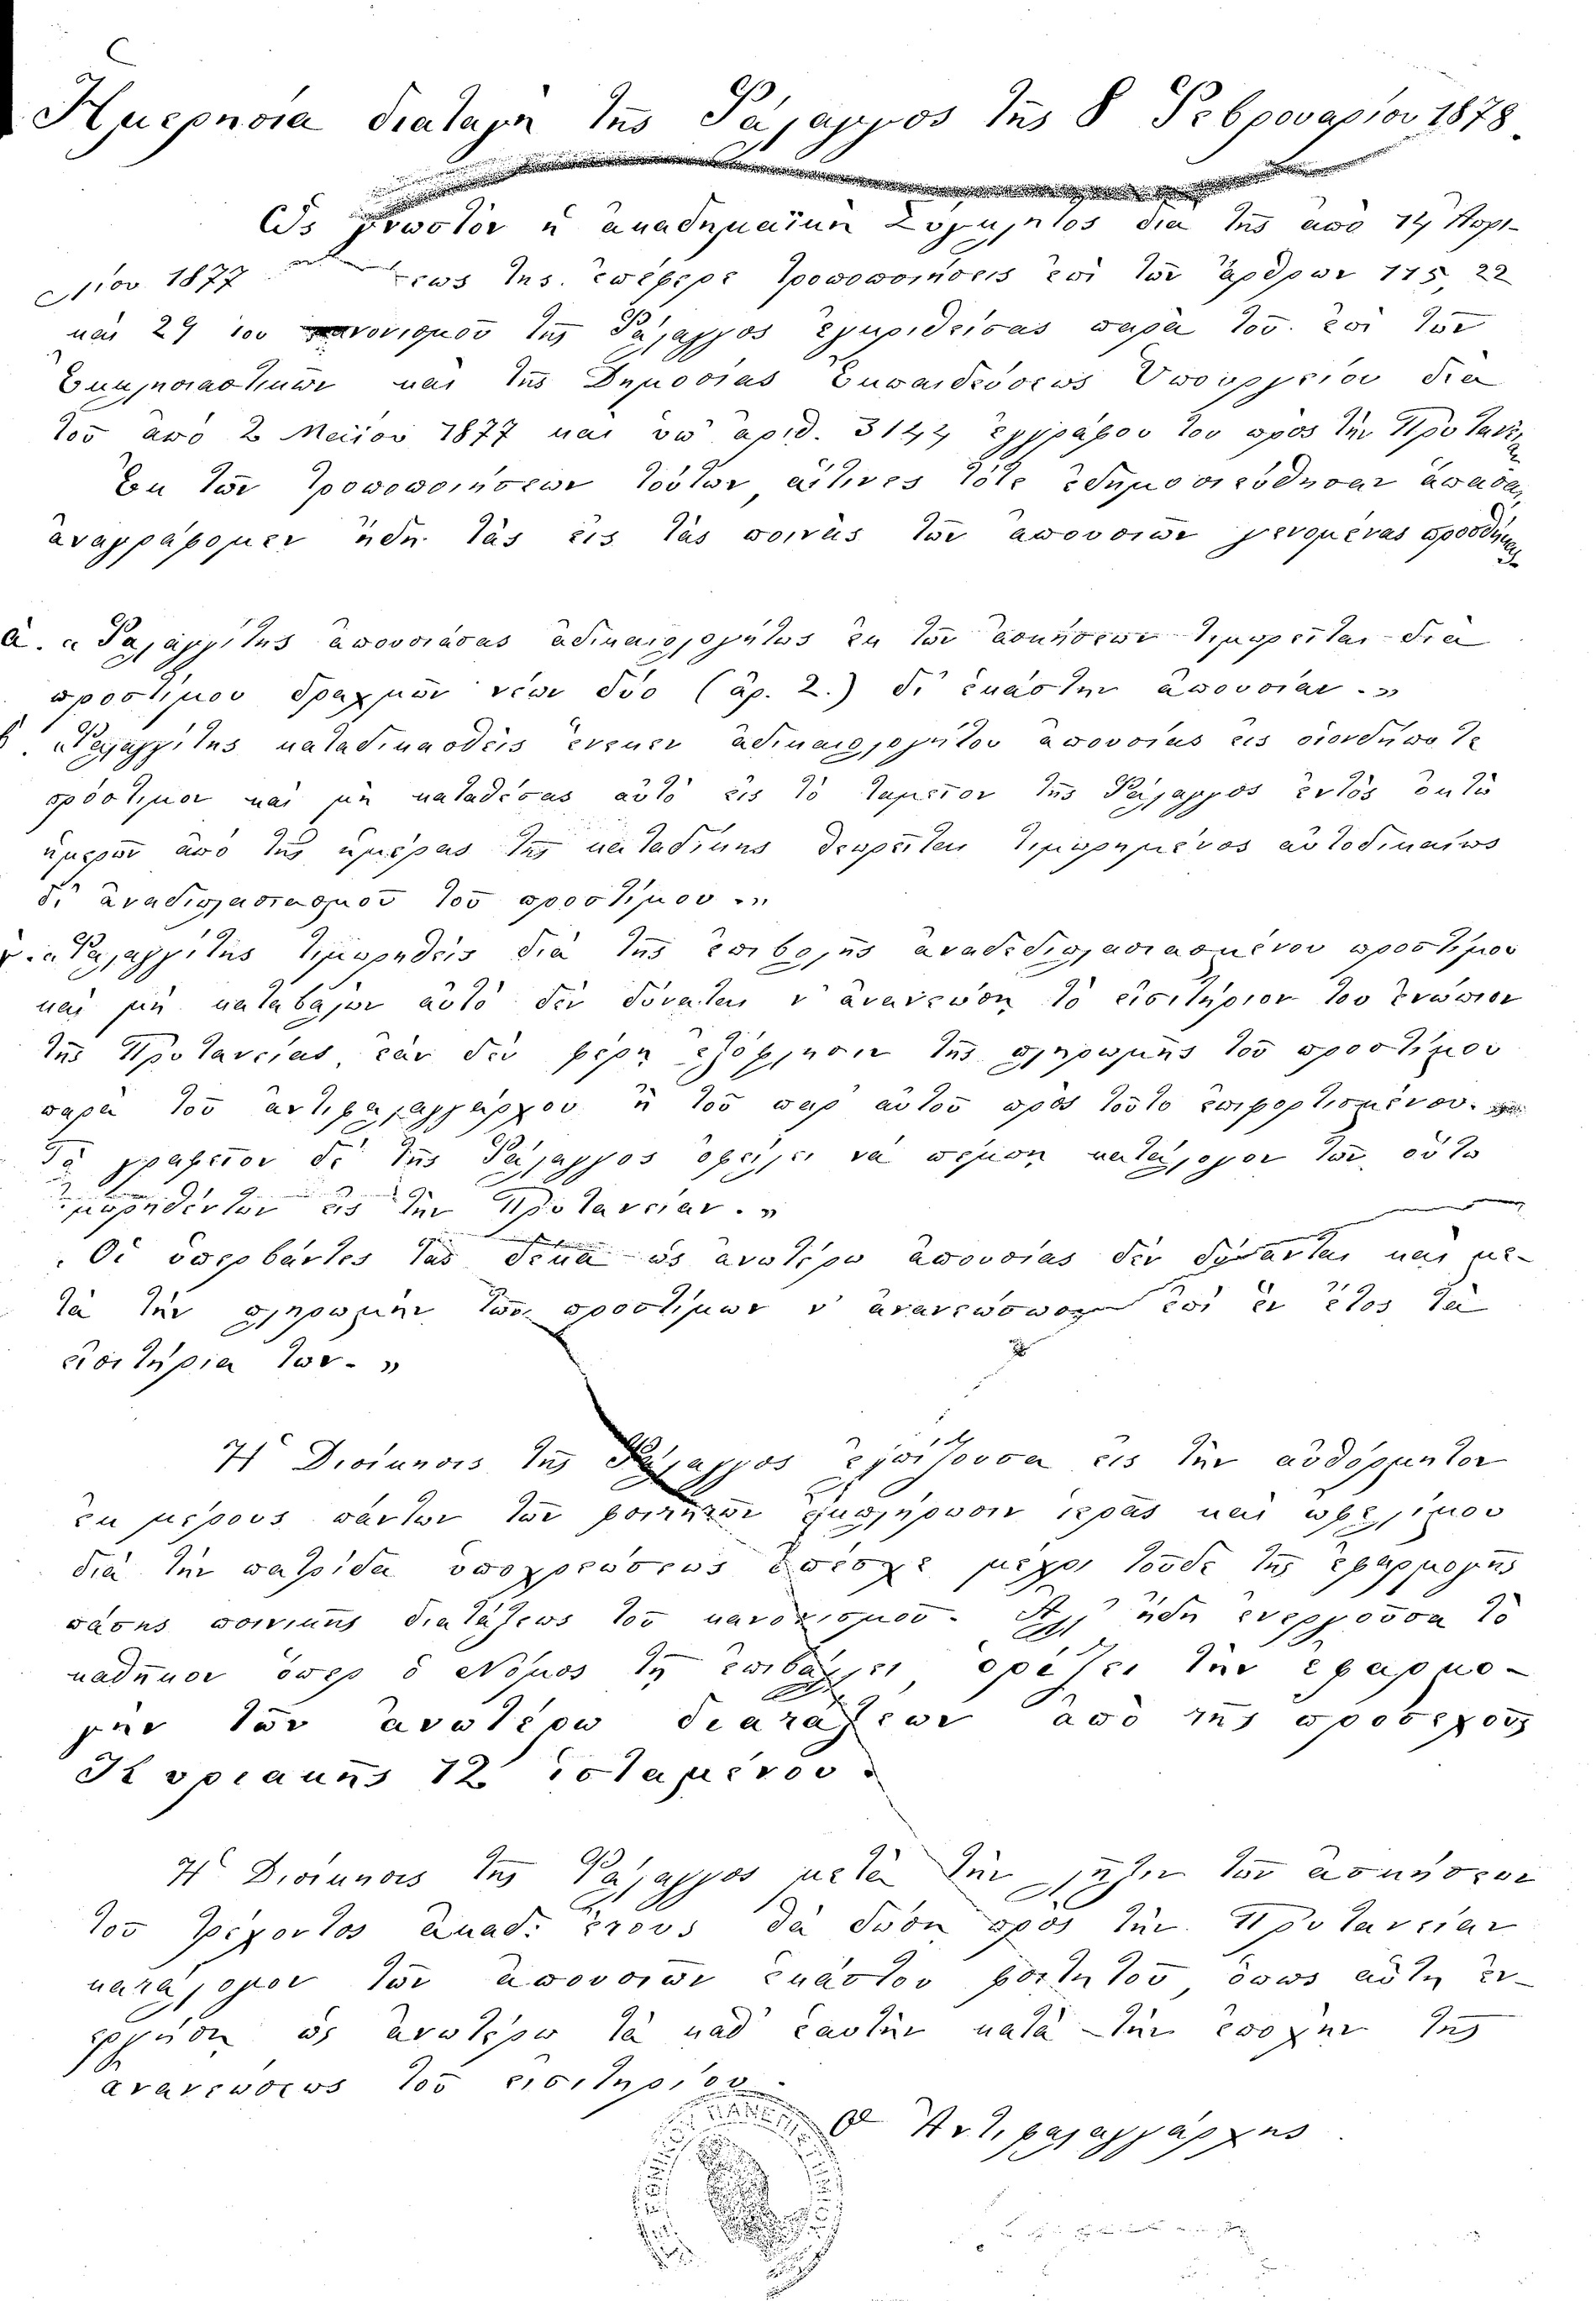 Ἡμερησία διαταγὴ τῆς Φάλαγγος τῆς 8 Φεβρουαρίου 1878
Ὡς γνωστὸν ἡ ἀκαδημαϊκὴ Σύγκλητος διὰ τῆς ἀπὸ 14 Ἀπρι-
λίου 1877 της ἐπέφερε τροποποιήσεις ἐπὶ τῶν ἄρθρων 115, 22
καὶ 29 του κανονισμοῦ τῆς Φάλαγγος ἐγκριθείσας παρὰ τοῦ ἐπὶ τῶν
Ἐκκλησιαστικῶν καὶ τῆς Δημοσίας Ἐκπαιδεύσεως Ὑπουργείου διὰ
τοῦ ἀπὸ 2 Μαΐου 1877 καὶ ὑπ' ἀριθ. 3144 ἐγγράφου του πρὸς τὴν Πρυτανείαν
Ἐκ τῶν τροποποιήσεων τούτων, αἵτινες τότε ἐδημοσιεύθησαν ἁπᾶσαι,
ἀναγράφομεν ἤδη τὰς εἰς τὰς ποινὰς τῶν ἀπουσιῶν γενομένας προσθήκας
ά. « Φαλαγγίτης ἀπουσιάσας ἀδικαιολογήτως ἐκ τῶν ἀσκήσεων τιμωρεῖται διὰ
προστίμου δραχμῶν νέων δύο (ἀρ. 2.) δι' ἑκάστην ἀπουσίαν. »
β. « Φαλαγγίτης καταδικασθεὶς ἕνεκεν ἀδικαιολογήτου ἀπουσίας εἰς οἱονδήποτε
πρόστιμον καὶ μὴ καταθέσας αὐτὸ εἰς τὸ ταμεῖον τῆς Φάλαγγος ἐντὸς ὀκτὼ
ἡμερῶν ἀπὸ τῆς ἡμέρας τῆς καταδίκης θεωρεῖται τιμωρημένος αὐτοδικαίως
δι' ἀναδιπλασιασμοῦ τοῦ προστίμου. »
γ. « Φαλαγγίτης τιμωρηθεὶς διὰ τῆς ἐπιβολῆς ἀναδεδιπλασιασμένου προστίμου
καὶ μὴ καταβαλὼν αὐτὸ δὲν δύναται ν' ἀνανεώσῃ τὸ εἰσιτήριόν του ἐνώπιον
τῆς Πρυτανείας, ἐὰν δὲν φέρῃ ἐξόφλησιν τῆς πληρωμῆς τοῦ προστίμου
παρὰ τοῦ ἀντιφαλαγγάρχου ἢ τοῦ παρ' αὐτοῦ πρὸς τοῦτο ἐπιφορτισμένου.
Τὸ γραφεῖον δὲ τῆς Φάλαγγος ὀφείλει νὰ πέμπῃ κατάλογον τῶν οὕτω
τιμωρηθέντων εἰς τὴν Πρυτανείαν. »
Οἱ ὑπερβάντες τὰς δέκα ὡς ἀνωτέρω ἀπουσίας δὲν δύνανται καὶ με-
τὰ τὴν πληρωμὴν τῶν προστίμων ν' ἀνανεώσωσιν ἐπὶ ἓν ἔτος τὰ
εἰσιτήριά των. »
Ἡ Διοίκησις τῆς Φάλαγγος ἐλπίζουσα εἰς τὴν αὐθόρμητον
ἐκ μέρους πάντων τῶν φοιτητῶν ἐκπλήρωσιν ἱερᾶς καὶ ὠφελίμου
διὰ τὴν πατρίδα ὑποχρεώσεως ἐπέσχε μέχρι τοῦδε τῆς ἐφαρμογῆς
πάσης ποινικῆς διατάξεως τοῦ κανονισμοῦ. Ἀλλ' ἤδη ἐνεργοῦσα τὸ
καθῆκον ὅπερ ὁ Νόμος τῇ ἐπιβάλλει, ὁρίζει τὴν ἐφαρμο-
γὴν τῶν ἀνωτέρω διατάξεων ἀπὸ τῆς προσεχοῦς
Κυριακῆς 12 ἱσταμένου.
Ἡ Διοίκησις τῆς Φάλαγγος μετὰ τὴν λῆξιν τῶν ἀσκήσεων
τοῦ τρέχοντος ἀκαδ: ἔτους θὰ δώσῃ πρὸς τὴν Πρυτανείαν
κατάλογον τῶν ἀπουσιῶν ἑκάστου φοιτητοῦ, ὅπως αὕτη ἐν-
εργήσῃ ὡς ἀνωτέρω τὰ καθ' ἑαυτὴν κατὰ τὴν ἐποχὴν τῆς
ἀνανεώσεως τοῦ εἰσιτηρίου.
Ὁ Ἀντιφαλαγγάρχης